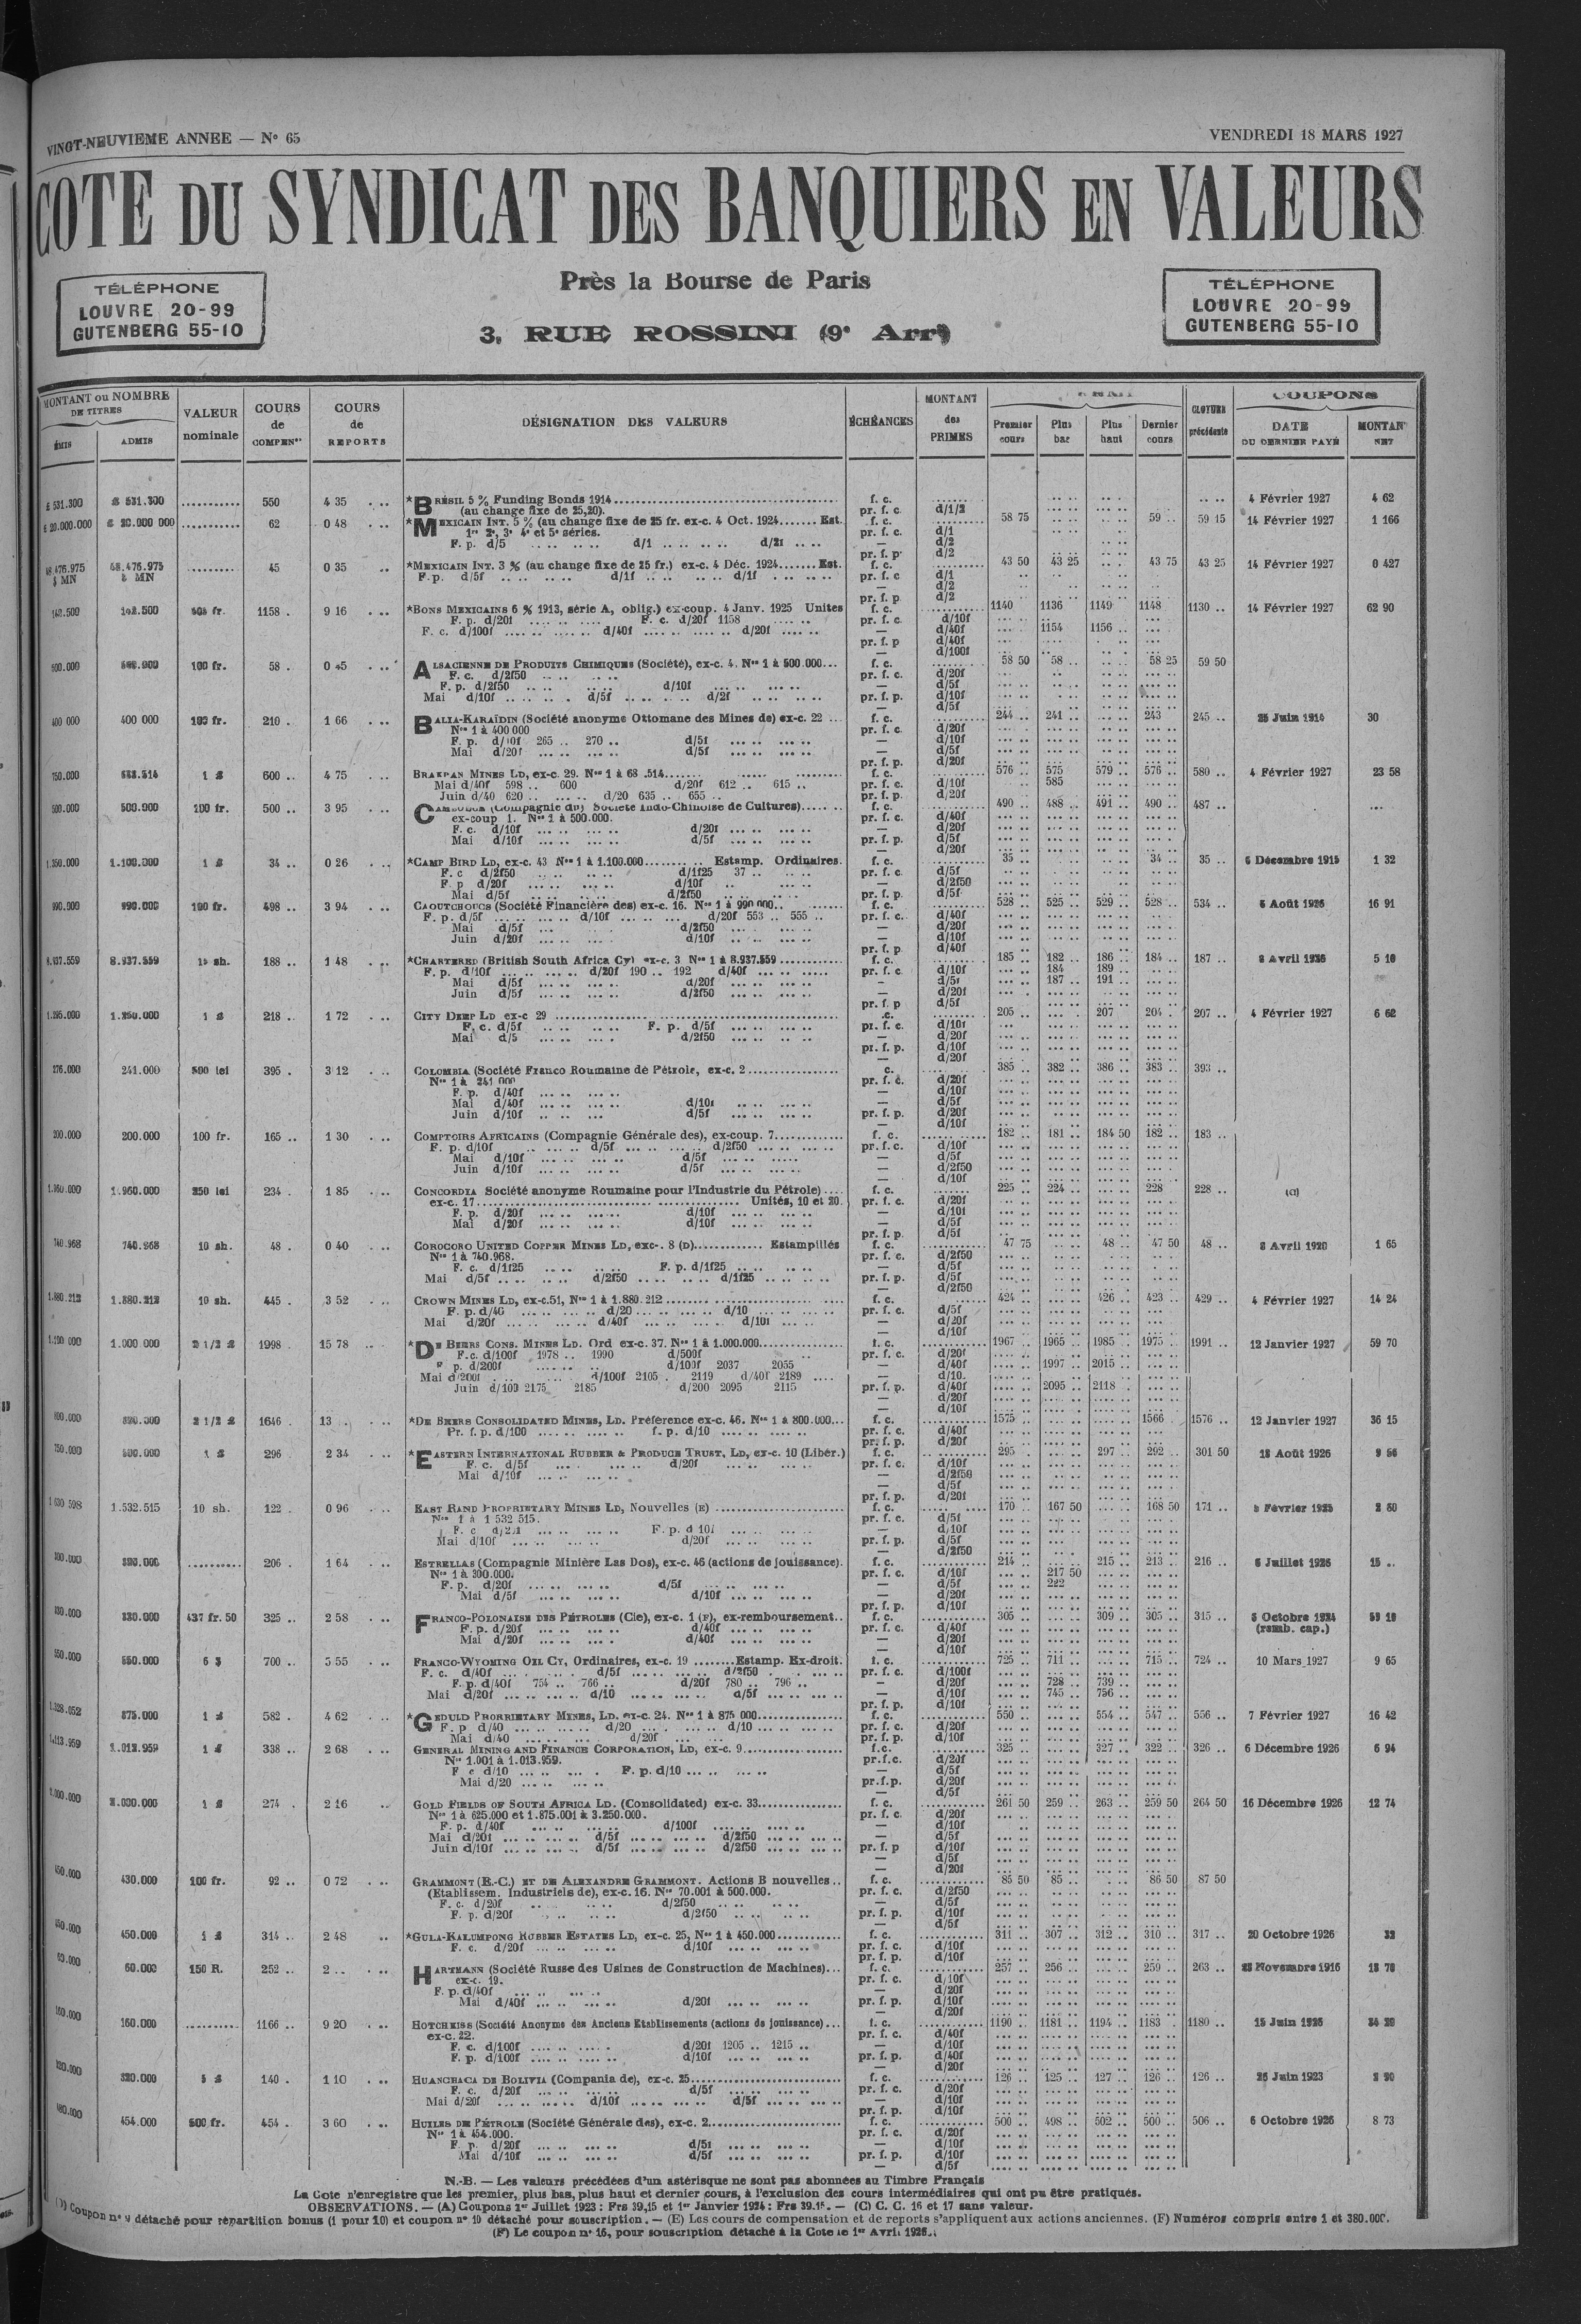 VINGT-NEUVIEME ANNEE — N° 65
VENDREDI 18 MARS 1927
COTE DU SYNDICAT DES BANQUIERS EN VALEURS
Près la Bourse de Paris
3, RUE ROSSINI (9e Arrt)
TÉLÉPHONE
LOUVRE 20-99
GUTENBERG 55-10
TÉLÉPHONE
LOUVRE 20-99
GUTENBERG 55-10
MONTANT ou NOMBRE DE TITRES
ÉMIS ADMIS
VALEUR nominale
COURS de COMPENon
COURS de REPORTS
DÉSIGNATION DES VALEURS
ÉCHÉANCES
MONTANT des PRIMES
Premier cours
Plus bas
Plus haut
Dernier cours
CLOTURE précédente
COUPONS
DATE DU DERNIER PAYÉ
MONTANT NET
£ 531.300 £ 531.300 .......... 550 4 35 *BRÉSIL 5 % Funding Bonds 1914 f. c. 4 Février 1927 4 62
(au change fixe de 25,20). pr. f. c. d/1/2
£ 20.000.000 £ 20.000 000 .......... 62 0 48 *MEXICAIN INT. 5 % (au change fixe de 25 fr. ex-c. 4 Oct. 1924....... Est. f. c. 58 75 59 .. 59 15 14 Février 1927 1 166
1re 2e, 3e 4e et 5e séries. pr. f. c. d/1
F. p. d/5 d/1 d/2f
48.476.975 $ MN 48.476.975 $ MN 45 0 35 *MEXICAIN INT. 3 % (au change fixe de 25 fr.) ex-c. 4 Déc. 1924....... Est. f. c. 43 50 43 25 43 75 43 25 14 Février 1927 0 427
F. p. d/5f d/1f d/1f pr. f. c d/1
142.500 142.500 505 fr. 1158 . 9 16 *BONS MEXICAINS 6 % 1913, série A, oblig.) ex-coup. 4 Janv. 1925 Unites f. c. 1140 1136 1149 1148 1130 .. 14 Février 1927 62 90
F. p. d/20f F. c. d/20f 1158 pr. f. c. d/10f
F. c. d/100f d/40f d/20f — d/40f 1154 1156 ..
500.000 500.000 100 fr. 58 . 0 45 ALSACIENNE DE PRODUITS CHIMIQUES (Société), ex-c. 4. Nos 1 à 500.000... f. c. 58 50 58 .. 58 25 59 50
F. c. d/2f50 pr. f. c. d/20f
F. p. d/2f50 d/10f — d/5f
Mai d/10f d/5f d/2f pr. f. p. d/10f
400 000 400 000 100 fr. 210 . 1 66 BALIA-KARAÏDIN (Société anonyme Ottomane des Mines de) ex-c. 22 ... f. c. 244 .. 241 .. 243 245 .. 25 Juin 1914 30
Nos 1 à 400 000 pr. f. c. d/20f
F. p. d/10f 265 .. 270 .. d/5f — d/10f
Mai d/20f d/5f — d/5f
750.000 1 £ 600 .. 4 75 BRAKPAN MINES LD, ex-c. 29. f. c. 576 .. 575 579 .. 576 .. 580 .. 4 Février 1927 23 58
Mai d/40f 598 .. 600 d/20f 612 .. 615 .. pr. f. c. d/10f 585
Juin d/40 620 .. d/20 635 .. 655 .. pr. f. p. d/20f
500.000 500.000 100 fr. 500 .. 3 95 CAMBODGE (Compagnie du) Société Indo-Chinoise de Cultures) f. c. 490 .. 488 .. 491 .. 490 .. 487 ..
ex-coup 1. Nos 1 à 500.000. pr. f. c. d/40f
F. c. d/10f d/20f — d/20f
Mai d/10f d/5f pr. f. p. d/5f
1.250.000 1.100.000 1 £ 34 .. 0 26 *CAMP BIRD LD, ex-c. 43 Nos 1 à 1.100.000 Estamp. Ordinaires. f. c. 35 .. 34 .. 35 .. 6 Décembre 1915 1 32
F. c d/2f50 d/1f25 37 .. pr. f. c. d/5f
F. p d/20f d/10f — d/2f50
Mai d/5f d/2f50 pr. f. p. d/5f
990.000 990.000 100 fr. 498 .. 3 94 CAOUTCHOUCS (Société Financière des) ex-c. 16. Nos 1 à 990 000.. f. c. 528 .. 525 .. 529 .. 528 .. 534 .. 5 Août 1926 16 91
F. p. d/5f d/10f d/20f 553 .. 555 .. pr. f. c. d/40f
Mai d/5f d/2f50 — d/20f
Juin d/20f d/10f — d/10f
8.937.559 8.937.559 15 sh. 188 .. 1 48 *CHARTERED (British South Africa Cy) ex-c. 3 Nos 1 à 8.937.559 f. c. 185 .. 182 .. 186 .. 184 .. 187 .. 8 Avril 1926 5 10
F. p. d/10f d/20f 190 .. 192 d/40f pr. f. c. d/10f 184 189 ..
Mai d/5f d/20f - d/5f 187 .. 191 ..
Juin d/5f d/2f50 — d/20f
1.250.000 1 £ 218 .. 1 72 CITY DEEP LD ex-c 29 205 .. 207 204 .. 207 .. 4 Février 1927 6 62
F. c. d/5f F. p. d/5f pr. f. c. d/10f
Mai d/5 d/2f50 — d/20f
276.000 241.000 500 lei 395 . 3 12 COLOMBIA (Société Franco Roumaine de Pétrole, ex-c. 2 385 .. 382 .. 386 .. 383 .. 393 ..
Nos 1 à 241 000 pr. f. c. d/20f
F. p. d/40f — d/10f
Mai d/40f d/10f — d/5f
Juin d/10f d/5f pr. f. p. d/20f
200.000 200.000 100 fr. 165 .. 1 30 COMPTOIRS AFRICAINS (Compagnie Générale des), ex-coup. 7 f. c. 182 .. 181 .. 184 50 182 .. 183 ..
F. p. d/10f d/5f d/2f50 pr. f. c. d/10f
Mai d/10f d/5f — d/5f
Juin d/10f d/5f — d/2f50
1.960.000 1.960.000 250 lei 234 . 1 85 CONCORDIA Société anonyme Roumaine pour l'Industrie du Pétrole) f. c. 225 .. 224 .. 228 228 ..
ex-c. 17 Unités, 10 et 20. pr. f. c. d/20f
F. p. d/20f d/10f — d/10f
Mai d/20f d/10f — d/5f
740.968 740.968 10 sh. 48 . 0 40 COROCORO UNITED COPPER MINES LD, exc-. 8 (D) Estampillés f. c. 47 75 48 .. 47 50 48 .. 8 Avril 1920 1 65
Nos 1 à 740.968. pr. f. c. d/2f50
F. c. d/1f25 F. p. d/1f25 — d/5f
Mai d/5f d/2f50 d/1f25 pr. f. p. d/5f
1.880.212 1.880.212 10 sh. 445 . 3 52 CROWN MINES LD, ex-c.51, Nos 1 à 1.880.212 f. c. 424 .. 426 .. 423 .. 429 .. 4 Février 1927 14 24
F. p. d/40 d/20 d/10 pr. f. c. d/5f
Mai d/20f d/40f d/10f — d/20f
1.000 000 2 1/2 £ 1998 . 15 78 *DE BEERS CONS. MINES LD. Ord ex-c. 37. Nos 1 à 1.000.000 f. c. 1967 1965 .. 1985 .. 1975 .. 1991 .. 12 Janvier 1927 59 70
F.c. d/100f 1978 .. 1990 d/500f pr. f. c. d/20f
F p. d/200f d/100f 2037 2055 — d/40f 1997 .. 2015 ..
Mai d/200f d/100f 2105 . 2119 d/40f 2189 — d/10.
Juin d/100 2175 2185 d/200 2095 2115 pr. f. p. d/40f 2095 .. 2118 .
800.000 2 1/2 £ 1646 . 13 *DE BEERS CONSOLIDATED MINES, LD. Préférence ex-c. 46. Nos 1 à 800.000... f. c. 1575 1566 1576 .. 12 Janvier 1927 36 15
Pr. f. p. d/100 f. p. d/10 pr. f. c. d/40f
750.000 500.000 1 £ 296 . 2 34 *EASTERN INTERNATIONAL RUBBER & PRODUCE TRUST, LD, ex-c. 10 (Libér.) f. c. 295 297 .. 292 .. 301 50 18 Août 1926 9 56
F. c. d/5f d/20f pr. f. c. d/10f
Mai d/10f — d/2f50
1.532.515 10 sh. 122 . 0 96 EAST RAND PROPRIETARY MINES LD, Nouvelles (E) f. c. 170 .. 167 50 168 50 171 .. Février 1925 2 80
Nos 1 à 1 532 515. pr. f. c. d/5f
F. c d/2f F. p. d 10f — d/10f
Mai d/10f d/20f pr. f. p. d/5f
300.000 300.000 .......... 206 . 1 64 ESTRELLAS (Compagnie Minière Las Dos), ex-c. 46 (actions de jouissance). f. c. 214 215 .. 213 .. 216 .. 6 Juillet 1926 15 ..
Nos 1 à 300.000. pr. f. c. d/10f 217 50
F. p. d/20f d/5f — d/5f 222
Mai d/5f d/10f — d/20f
330.000 437 fr. 50 325 .. 2 58 FRANCO-POLONAISE DES PÉTROLES (Cie), ex-c. 1 (F), ex-remboursement.. f. c. 305 .. 309 .. 305 .. 315 .. 6 Octobre 1924
F. p. d/20f d/40f pr. f. c. d/40f (remb. cap.)
Mai d/20f d/40f — d/20f
550.000 550.000 6 $ 700 .. 5 55 FRANCO-WYOMING OIL CY, Ordinaires, ex-c. 19 Estamp. Ex-droit. f. c. 725 711 .. 715 .. 724 .. 10 Mars 1927 9 65
F. c. d/40f d/5f d/2f50 pr. f. c. d/100f
F. p. d/40f 754 .. 766 .. d/20f 780 .. 796 .. — d/20f 728 .. 739 ..
Mai d/20f d/10 d/5f — d/10f 745 .. 756 ..
1.328.052 875.000 1 £ 582 . 4 62 *GEDULD PRORRIETARY MINES, LD. ex-c. 24. Nos 1 à 875 000 f. c. 550 .. 554 .. 547 .. 556 .. 7 Février 1927 16 42
F. p d/40 d/20 d/10 pr. f. c. d/20f
Mai d/40 d/20f pr. f. p. d/10f
1.113.959 1.013.959 1 £ 338 .. 2 68 GENERAL MINING AND FINANCE CORPORATION, LD, ex-c. 9 f.c. 325 .. 327 .. 322 .. 326 .. 6 Décembre 1926 6 94
Nos 1.001 à 1.013.959. pr.f.c. d/20f
F c d/10 F. p. d/10 — d/5f
Mai d/20 pr.f.p. d/20f
2.000.000 1 £ 274 . 2 16 GOLD FIELDS OF SOUTH AFRICA LD. (Consolidated) ex-c. 33 f. c. 261 50 259 .. 263 .. 259 50 264 50 16 Décembre 1926 12 74
Nos 1 à 625.000 et 1.875.001 à 3.250.000. pr. f. c. d/20f
F. p. d/40f d/100f — d/10f
Mai d/20f d/5f d/2f50 — d/5f
Juin d/10f d/5f d/2f50 pr. f. p d/10f
430.000 100 fr. 92 .. 0 72 GRAMMONT (E.-C.) ET DE ALEXANDRE GRAMMONT. Actions B nouvelles.. f. c. 85 50 85 .. 86 50 87 50
(Etablissem. Industriels de), ex-c. 16. Nos 70.001 à 500.000. pr. f. c. d/2f50
F. c. d/20f d/2f50 — d/5f
F. p. d/20f d/2f50 pr. f. p. d/10f
450.000 450.000 1 £ 314 .. 2 48 *GULA-KALUMPONG RUBBER ESTATES LD, ex-c. 25, Nos 1 à 450.000 f. c. 311 .. 307 .. 312 .. 310 .. 317 .. 20 Octobre 1926 32
F. c. d/20f d/10f pr. f. c. d/10f
60.000 150 R. 252 .. 2 .. HARTMANN (Société Russe des Usines de Construction de Machines)... f. c. 257 256 .. 259 .. 263 .. Novembre 1916 18 78
ex-c. 19. pr. f. c. d/10f
F. p. d/40f — d/20f
Mai d/40f d/20f pr. f. p. d/10f
160.000 160.000 .......... 1166 .. 9 20 HOTCHKISS (Société Anonyme des Anciens Etablissements (actions de jouissance)... f. c. 1190 .. 1181 .. 1194 .. 1183 .. 1180 .. 15 Juin 1926 34 20
ex-c. 22. pr. f. c. d/40f
F. c. d/100f d/20f 1205 .. 1215 .. — d/10f
F. p. d/100f d/10f pr. f. p. d/40f
320.000 320.000 5 £ 140 . 1 10 HUANCHACA DE BOLIVIA (Compania de), ex-c. 25 f. c. 126 .. 125 .. 127 .. 126 .. 126 .. 26 Juin 1923
F. c. d/20f d/5f pr. f. c. d/20f
Mai d/20f d/10f d/5f — d/10f
454.000 500 fr. 454 . 3 60 HUILES DE PÉTROLE (Société Générale des), ex-c. 2 f. c. 500 498 .. 502 .. 500 .. 506 .. 6 Octobre 1926 8 73
Nos 1 à 454.000. pr. f. c. d/20f
F. p. d/20f d/5f — d/10f
Mai d/10f d/5f pr. f. p. d/10f
N.-B. — Les valeurs précédées d'un astérisque ne sont pas abonnées au Timbre Français
La Cote n'enregistre que les premier, plus bas, plus haut et dernier cours, à l'exclusion des cours intermédiaires qui ont pu être pratiqués.
OBSERVATIONS. — (A) Coupons 1er Juillet 1923 : Frs 39,15 et 1er Janvier 1924 : Frs 39.15. — (C) C. C. 16 et 17 sans valeur.
Coupon n° 9 détaché pour répartition bonus (1 pour 10) et coupon n° 10 détaché pour souscription. — (E) Les cours de compensation et de reports s'appliquent aux actions anciennes. (F) Numéros compris entre 1 et 380.000.
(F) Le coupon n° 16, pour souscription détaché à la Cote le 1er Avril 1926.